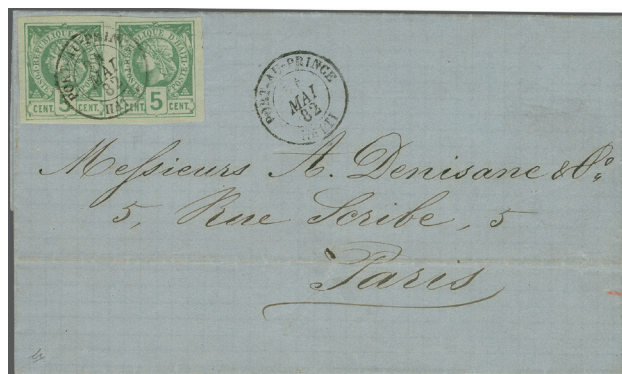 REPUBLIQUE D'HAITI
CENT. 5 CENT. CENT. 5 CENT.
PORT-AU-PRINCE
MAI
82
HAITI
PORT-AU-PRINCE
MAI
82
HAITI
Messieurs A. Denisane & Co.
5, Rue Scribe, 5
Paris